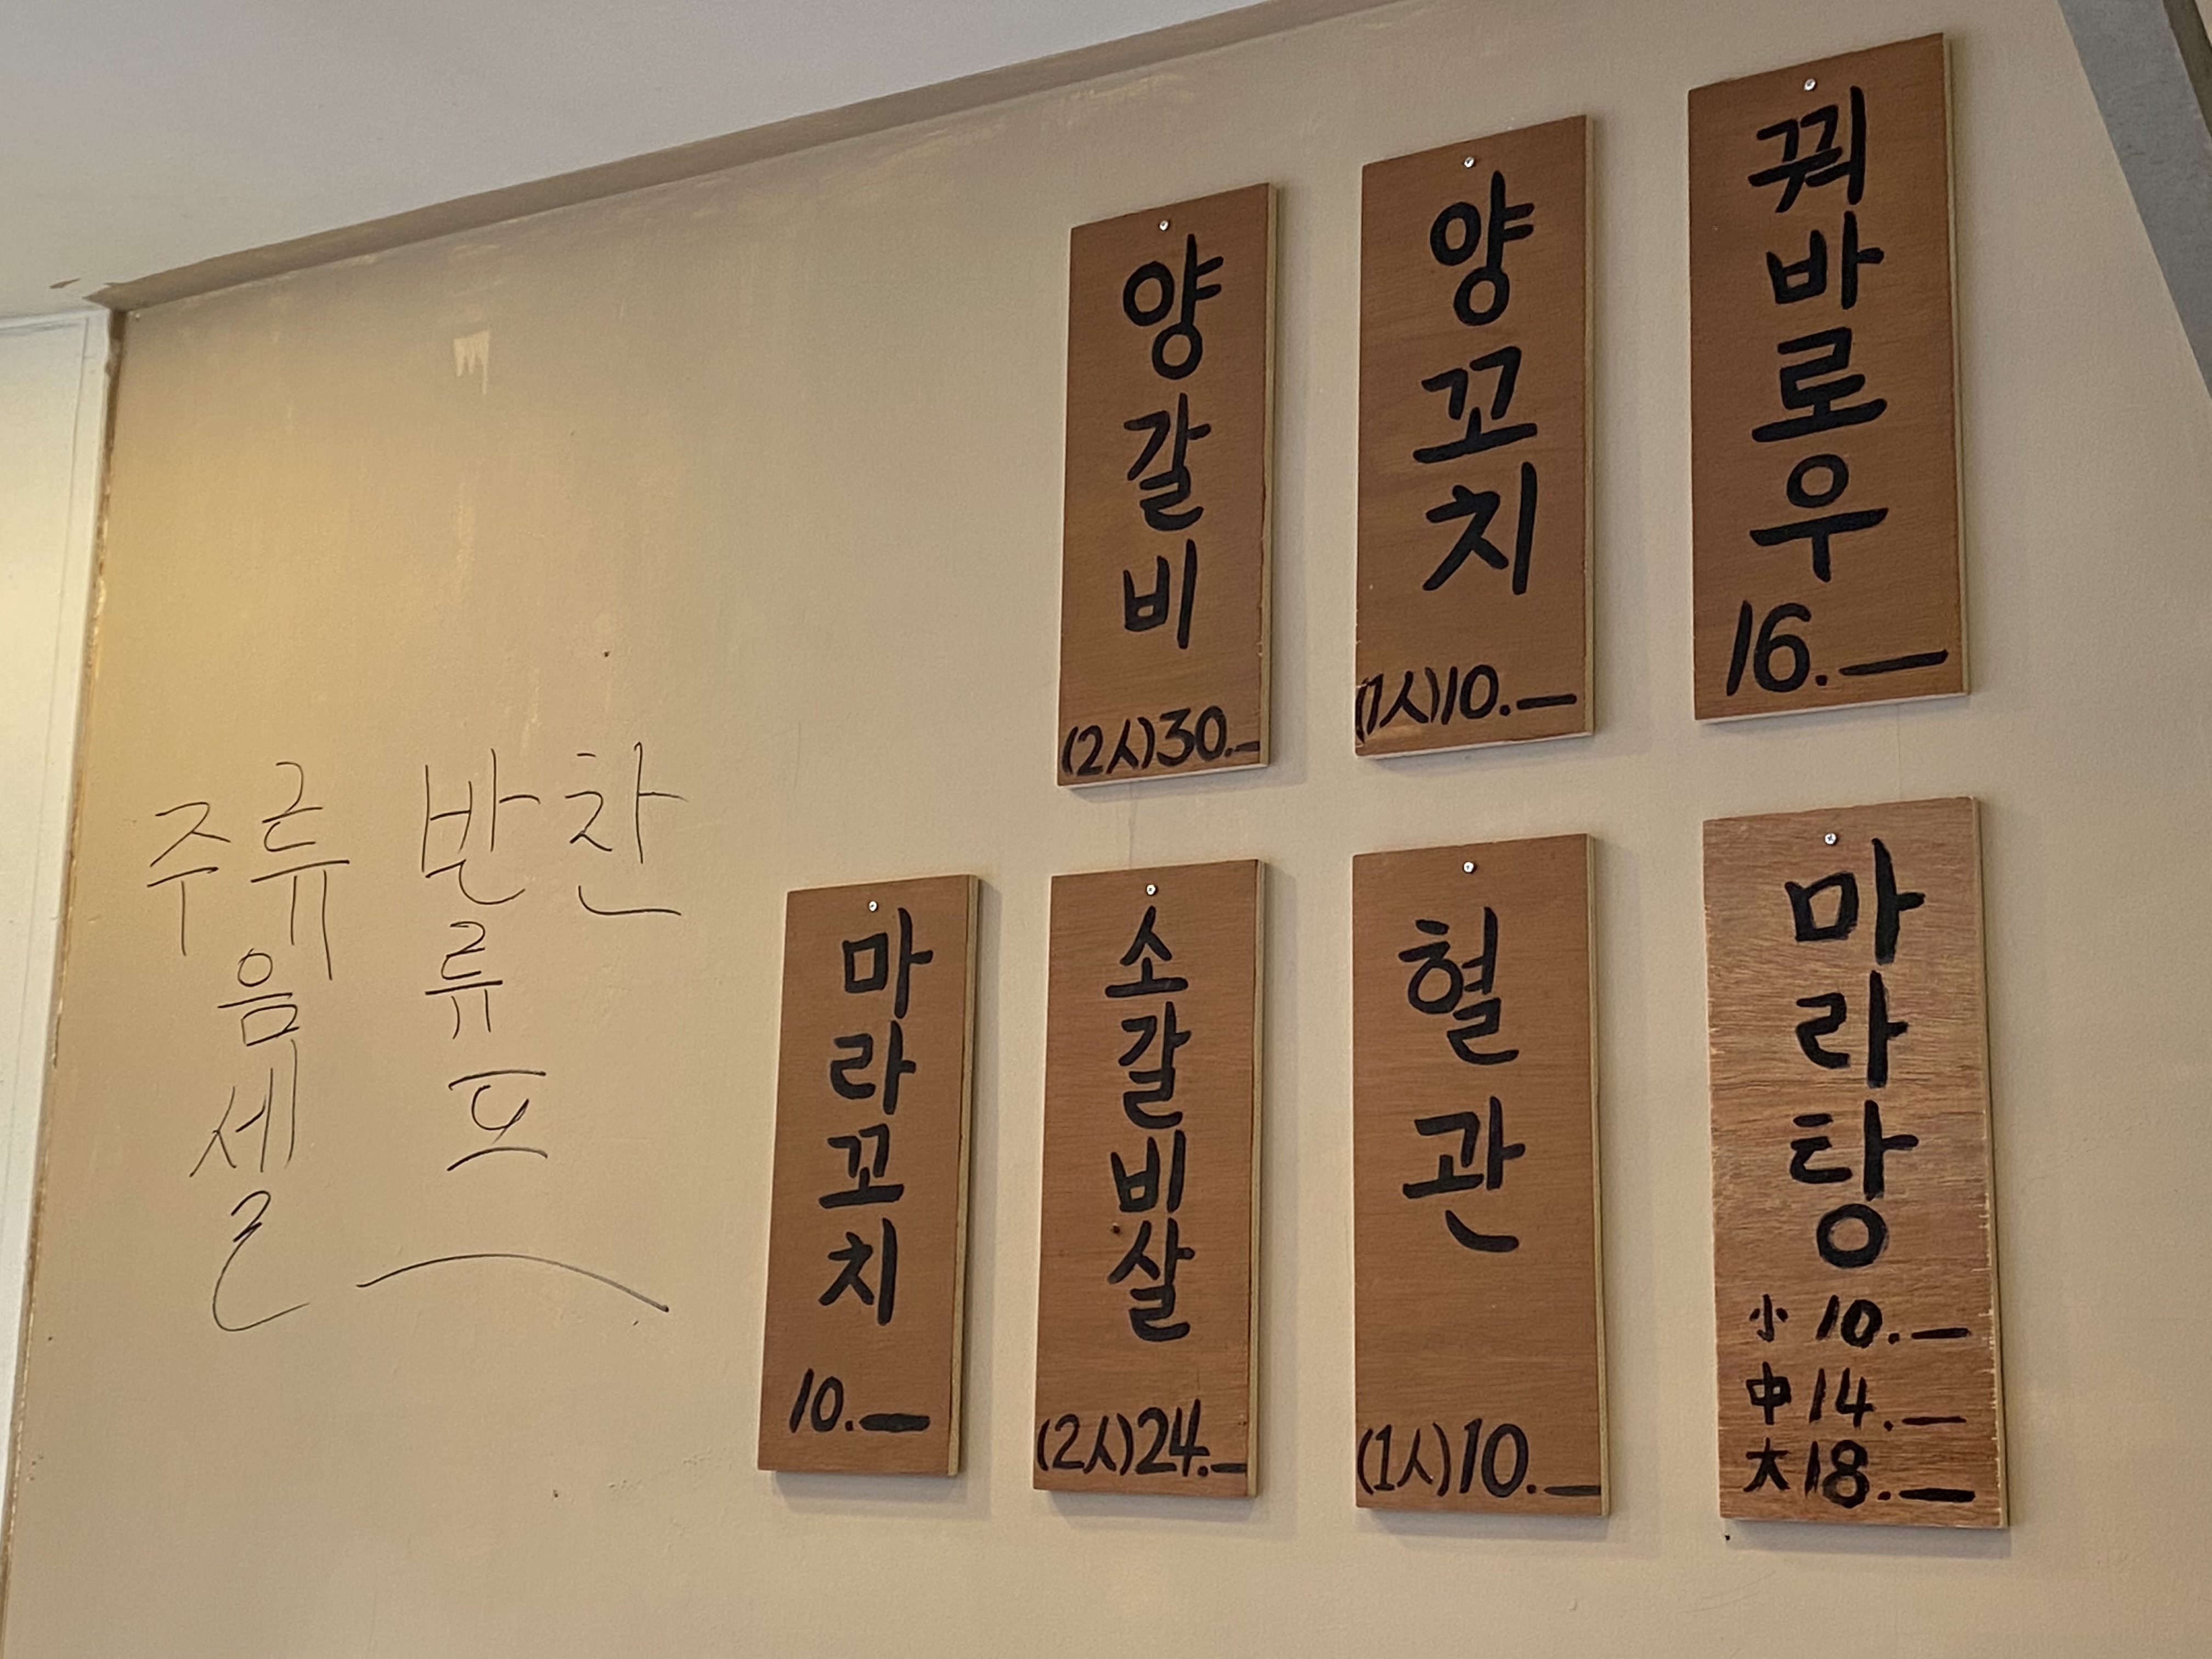 양갈비
(2人)30.—
양꼬치
(1人)10.—
꿔바로우
16.—
마라꼬치
10.—
소갈비살
(2人)24.—
혈관
(1人)10.—
마라탕
小 10.—
中 14.—
大 18.—
주류
음
세
반찬
류